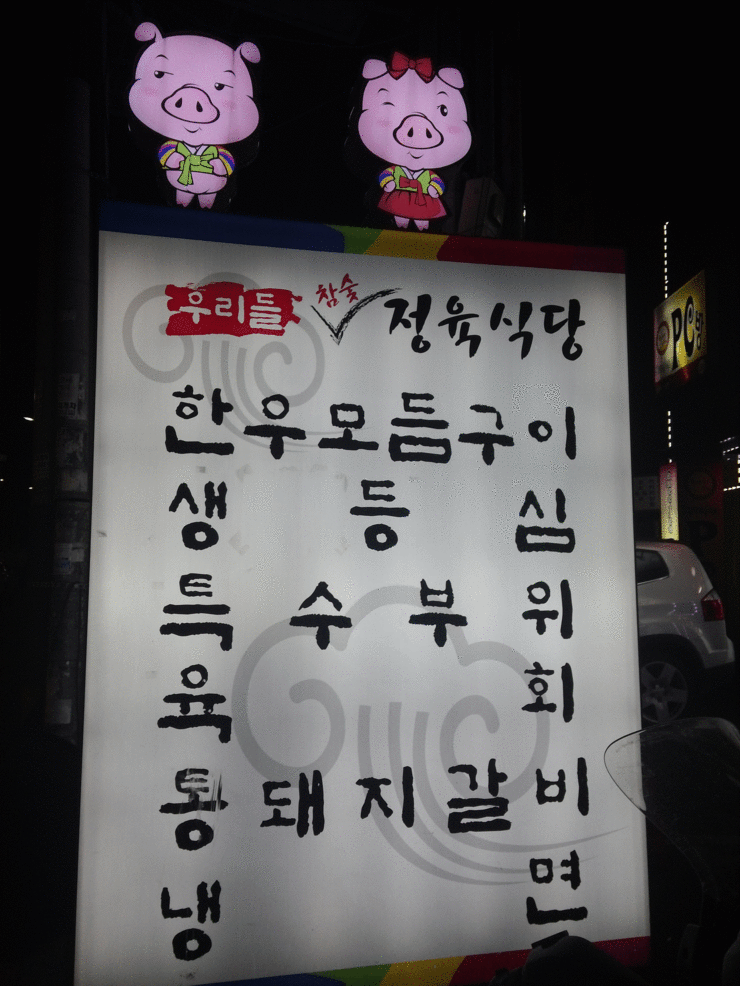 우리들 참숯 정육식당
한우모듬구이
생등심
특수부위
육회
통돼지갈비
냉면
PC방